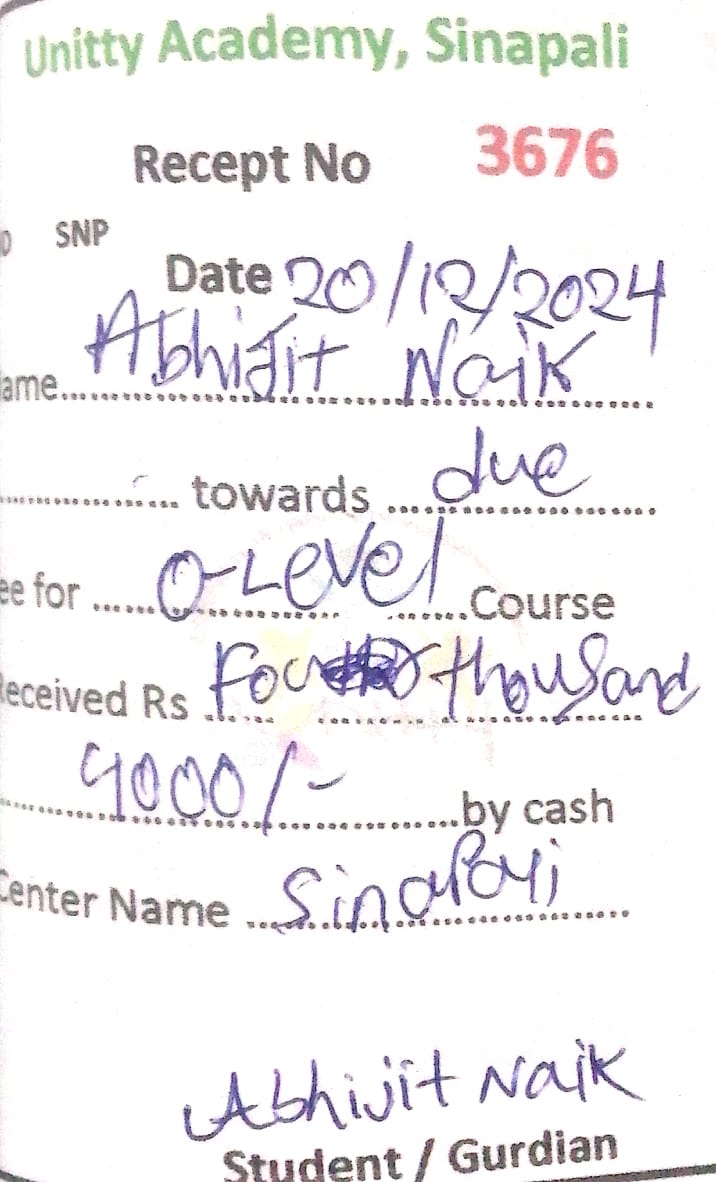 Unitty Academy, Sinapali
Recept No 3676
SNP
Date 20/12/2024
ame Abhijit Naik
towards due
ee for O-Level Course
eceived Rs Four thousand
4000/- by cash
Center Name Sinapali
Abhijit Naik
Student / Gurdian